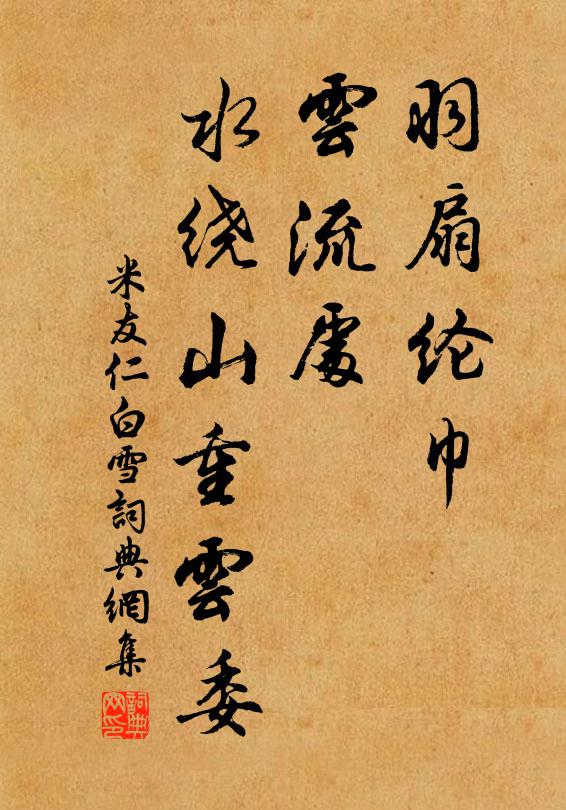 羽扇纶巾
雲流處
水绕山重雲委
米友仁白雪詞典網集
詞典网印